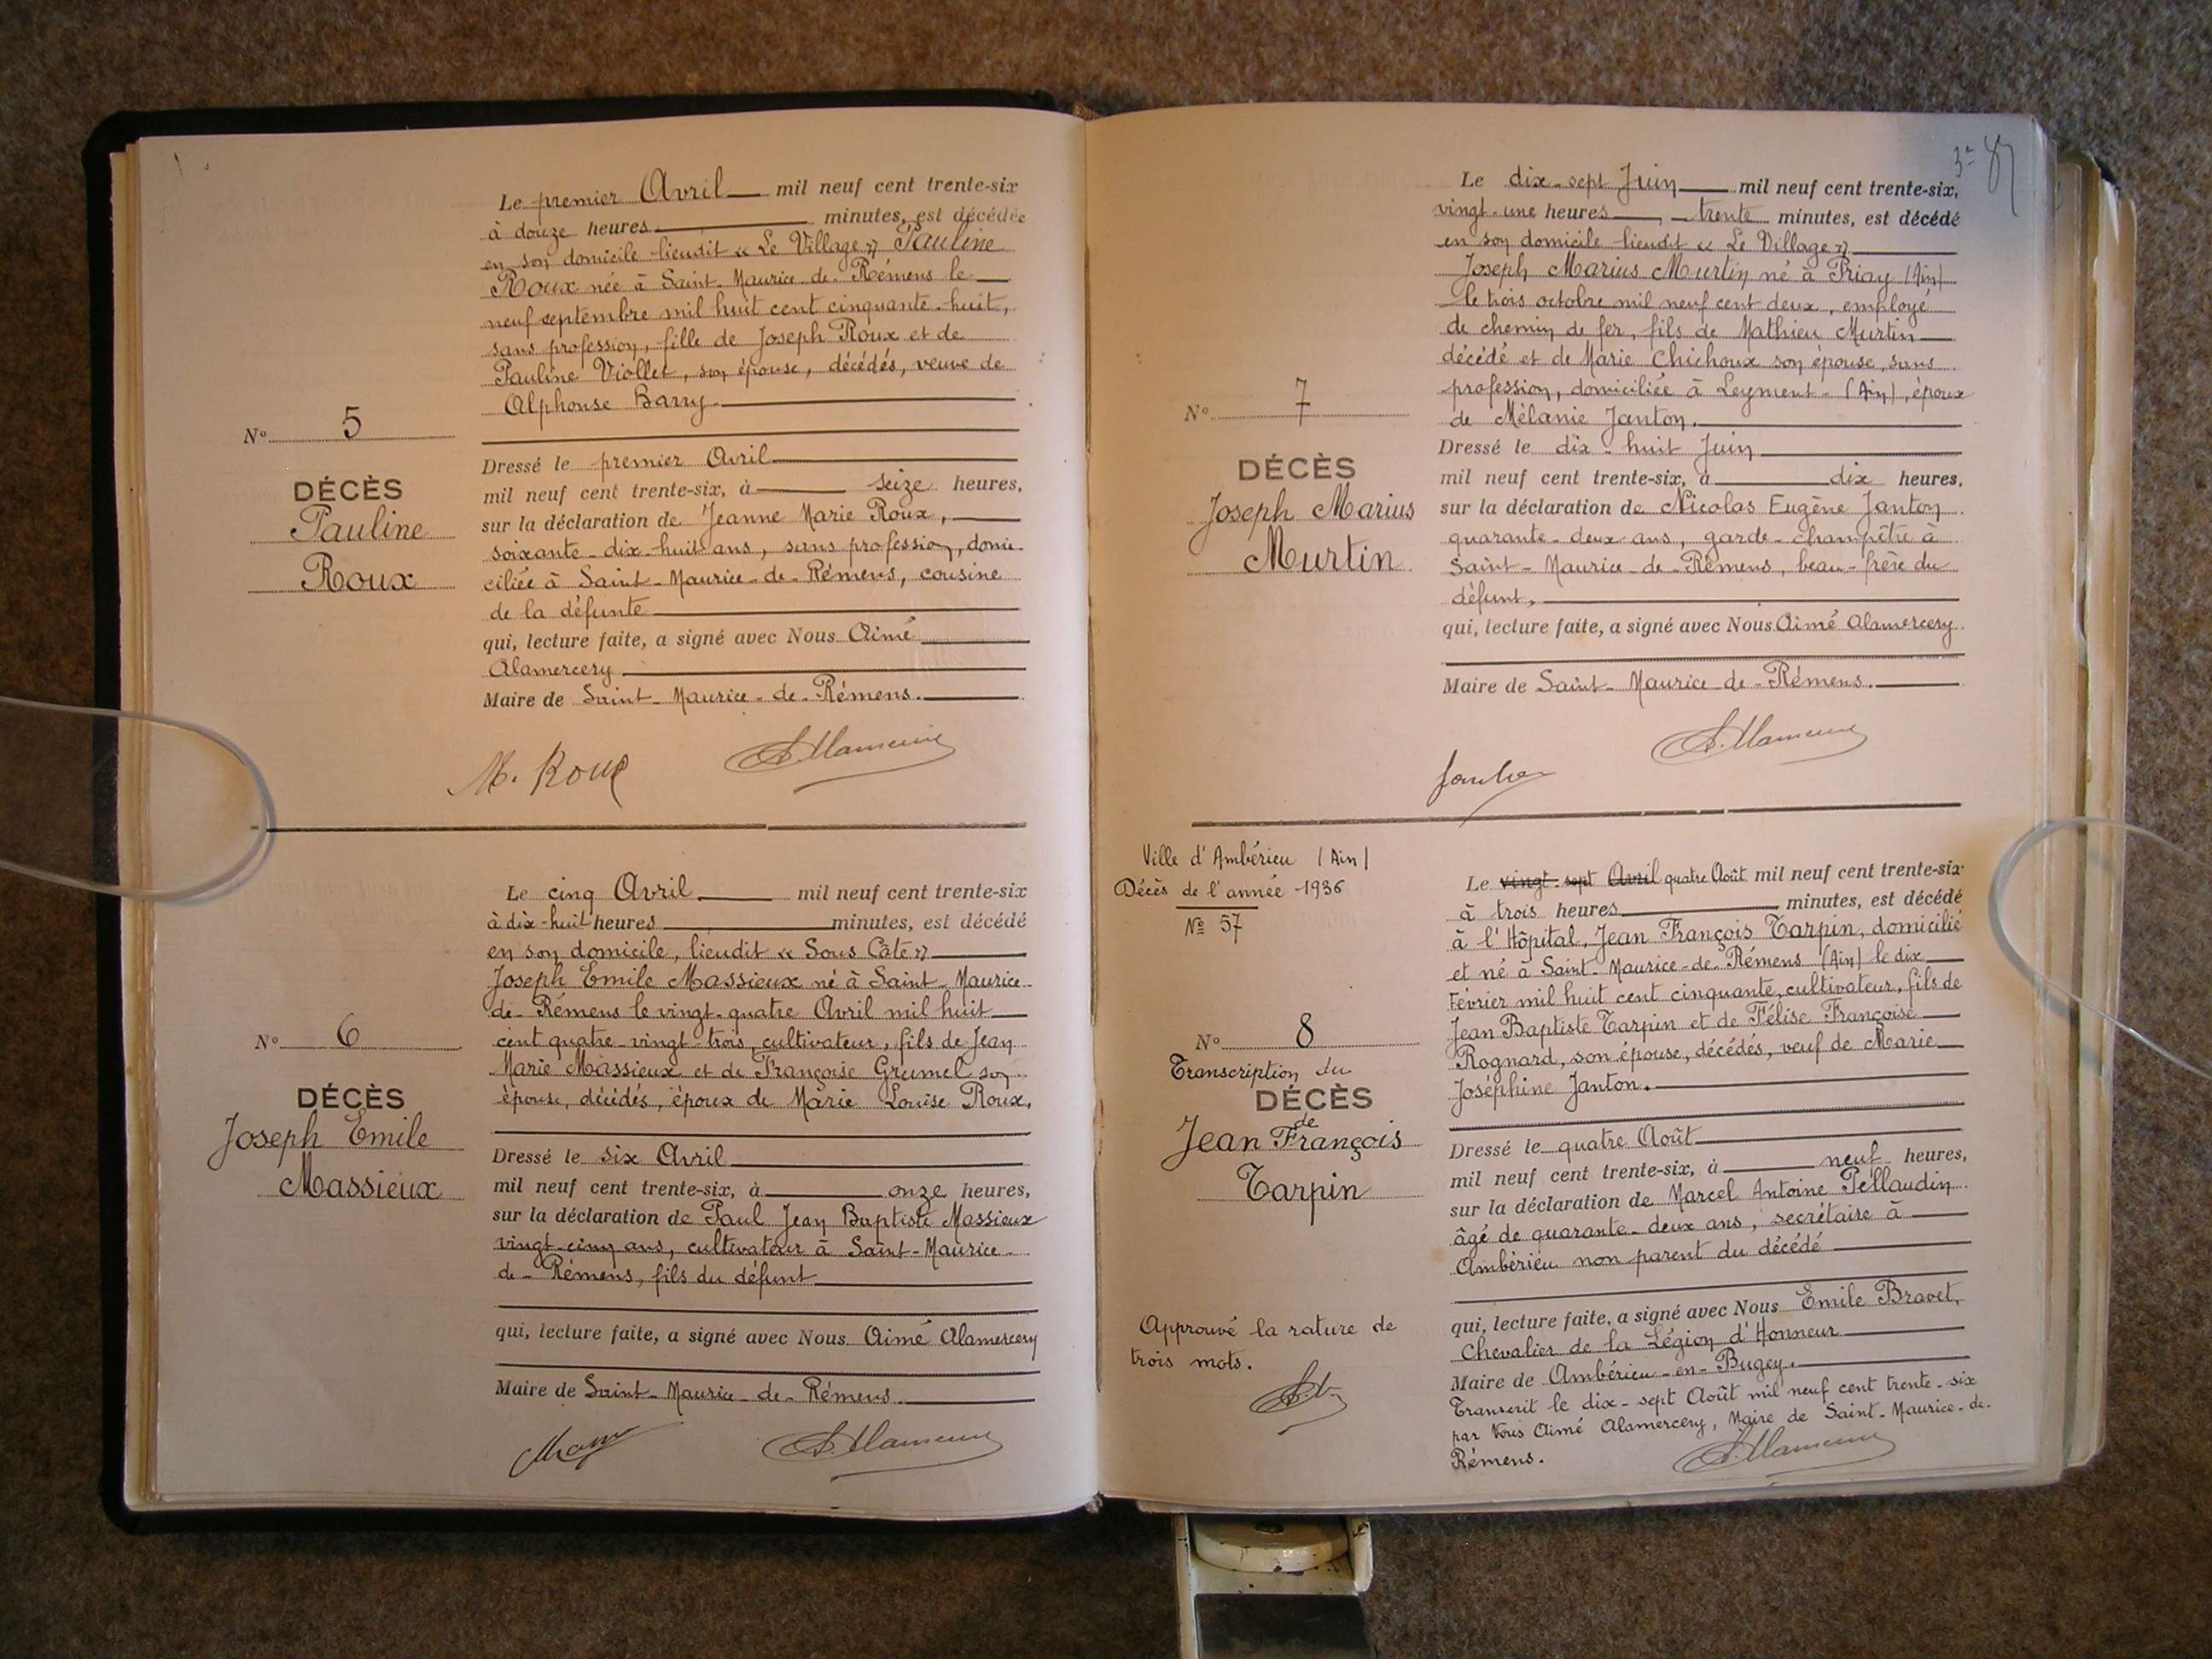 Le premier Avril mil neuf cent trente-six
à douze heures minutes, est décédée
en son domicile lieudit « Le Village » Pauline
Roux née à Saint-Maurice-de-Rémens le
neuf septembre mil huit cent cinquante-huit,
sans profession, fille de Joseph Roux et de
Pauline Viollet, son épouse, décédés, veuve de
Alphonse Barry.
N° 5
DÉCÈS
Pauline
Roux
Dressé le premier Avril
mil neuf cent trente-six, à seize heures,
sur la déclaration de Jeanne Marie Roux,
soixante-dix-huit ans, sans profession, domi-
ciliée à Saint-Maurice-de-Rémens, cousine
de la défunte
qui, lecture faite, a signé avec Nous Aimé
Alamercery
Maire de Saint-Maurice-de-Rémens.
M. Roux
Le cinq Avril mil neuf cent trente-six
à dix-huit heures minutes, est décédé
en son domicile, lieudit « Sous Côte »
Joseph Emile Massieux né à Saint-Maurice-
de-Rémens le vingt-quatre Avril mil huit
cent quatre-vingt-trois, cultivateur, fils de Jean
Marie Massieux et de Françoise Grumel son
épouse, décédés, époux de Marie Louise Roux.
N° 6
DÉCÈS
Joseph Emile
Massieux
Dressé le six Avril
mil neuf cent trente-six, à onze heures,
sur la déclaration de Paul Jean Baptiste Massieux
vingt-cinq ans, cultivateur à Saint-Maurice-
de-Rémens, fils du défunt
qui, lecture faite, a signé avec Nous Aimé Alamercery
Maire de Saint-Maurice-de-Rémens
87
Le dix-sept Juin mil neuf cent trente-six,
vingt-une heures, trente minutes, est décédé
en son domicile lieudit « Le Village »
Joseph Marius Murtin né à Priay (Ain)
le trois octobre mil neuf cent deux, employé
de chemin de fer, fils de Mathieu Murtin
décédé et de Marie Chichoux son épouse, sans
profession, domiciliée à Leyment (Ain), époux
de Mélanie Janton.
N° 7
DÉCÈS
Joseph Marius
Murtin
Dressé le dix-huit Juin
mil neuf cent trente-six, à dix heures,
sur la déclaration de Nicolas Eugène Janton
quarante-deux ans, garde-champêtre à
Saint-Maurice-de-Rémens, beau-frère du
défunt,
qui, lecture faite, a signé avec Nous Aimé Alamercery
Maire de Saint-Maurice-de-Rémens.
Janton
Ville d'Ambérieu (Ain)
Décès de l'année 1936
N° 57
Le vingt-sept Avril quatre Août mil neuf cent trente-six
à trois heures minutes, est décédé
à l'Hôpital, Jean François Tarpin, domicilié
et né à Saint-Maurice-de-Rémens (Ain) le dix
Février mil huit cent cinquante, cultivateur, fils de
Jean Baptiste Tarpin et de Félise Françoise
Rognard, son épouse, décédés, veuf de Marie
Joséphine Janton.
N° 8
Transcription du
DÉCÈS
de
Jean François
Tarpin
Dressé le quatre Août
mil neuf cent trente-six, à neuf heures,
sur la déclaration de Marcel Antoine Pellaudin
âgé de quarante-deux ans, secrétaire à
Ambérieu non parent du décédé
qui, lecture faite, a signé avec Nous Emile Bravet,
Chevalier de la Légion d'Honneur
Maire de Ambérieu-en-Bugey.
Transcrit le dix-sept Août mil neuf cent trente-six
par Nous Aimé Alamercery, Maire de Saint-Maurice-de-
Rémens.
Approuvé la rature de
trois mots.